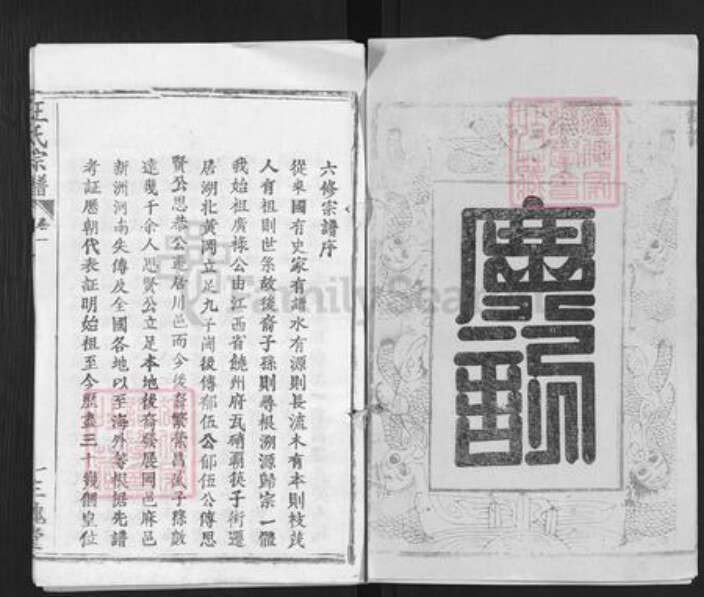 六修宗譜序
從來國有史家有譜水有源則長流木有本則枝茂
人有祖則世系故後裔子孫則尋根溯源歸宗一體
我始祖廣祿公由江西省饒州府瓦硝覇筷子街遷
居湖北黃岡立足九子崗後傳郁伍公郁伍公傳思
賢公思恭公遷居川邑而今後裔繁榮昌茂子孫數
達幾千余人思賢公立足本地後裔發展岡邑麻邑
新洲河南失傳及全國各地以至海外著根据先譜
考証歷朝代表証明始祖至今歷盡三十幾個皇位
汪氏宗譜
卷一
一
三槐堂
FamilySearch